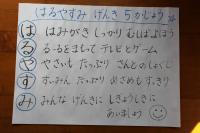 はるやすみ げんき 5かじょう
は はみがき しっかり むしばよぼう
る るーるをまもって テレビとゲーム
や やさいも たっぷり さんとのしょくじ
す すいみん たっぷり めざめもすっきり
み みんな げんきに しぎょうしきに
あいましょう